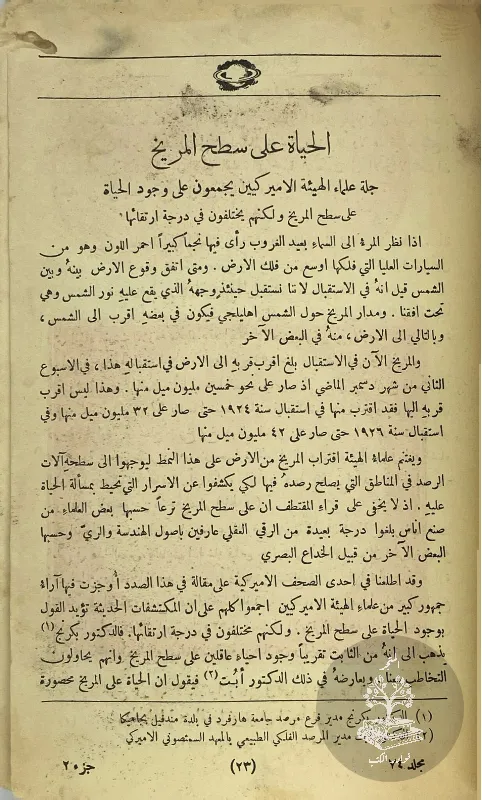 الحياة على سطح المريخ
جلة علماء الهيئة الاميركيين يجمعون على وجود الحياة
على سطح المريخ ولكنهم يختلفون في درجة ارتقائها
اذا نظر المرة الى السماء بعيد الغروب رأى فيها نجماً كبيراً احمر اللون وهو من
السيارات العليا التي فلكها اوسع من فلك الارض . ومتى اتفق وقوع الارض بينهُ وبين
الشمس قيل انهُ في الاستقبال لاننا نستقبل حينئذٍ وجههُ الذي يقع عليهِ نور الشمس وهي
تحت افقنا . ومدار المريخ حول الشمس اهليلجي فيكون في بعضهِ اقرب الى الشمس ،
وبالتالي الى الارض ، منهُ في البعض الآخر
والمريخ الآن في الاستقبال بلغ اقرب قربهِ الى الارض في استقبالهِ هذا ، في الاسبوع
الثاني من شهر دسمبر الماضي اذ صار على نحو خمسين مليون ميل منها . وهذا ليس اقرب
قربهِ اليها فقد اقترب منها في استقبال سنة ١٩٢٤ حتى صار على ٣٢ مليون ميل منها وفي
استقبال سنة ١٩٢٦ حتى صار على ٤٢ مليون ميل منها
ويغتنم علماء الهيئة اقتراب المريخ من الارض على هذا النمط ليوجهوا الى سطحهِ آلات
الرصد في المناطق التي يصلح رصدهُ فيها لكي يكشفوا عن الاسرار التي تحيط بمسألة الحياة
عليهِ . اذ لا يخفى على قراء المقتطف ان على سطح المريخ ترعاً حسبها بعض العلماء من
صنع اناس بلغوا درجة بعيدة من الرقي العقلي عارفين باصول الهندسة والريّ وحسبها
البعض الآخر من قبيل الخداع البصري
وقد اطلعنا في احدى الصحف الاميركية على مقالة في هذا الصدد أُوجزت فيها آراءُ
جمهور كبير من علماء الهيئة الاميركيين اجمعوا كلهم على ان المكتشفات الحديثة تؤيد القول
بوجود الحياة على سطح المريخ . ولكنهم مختلفون في درجة ارتقائها. فالدكتور بكرنج (١)
يذهب الى انهُ من الثابت تقريباً وجود احياء عاقلين على سطح المريخ وانهم يحاولون
التخاطب معنا ويعارضهُ في ذلك الدكتور أبُت (٢) فيقول ان الحياة على المريخ محصورة
(١) الدكتور بكرنج مدير فرع مرصد جامعة هارفرد في بلدة مندفيل بجاميكا
(٢) مدير المرصد الفلكي الطبيعي بالمعهد السمتصوني الاميركي
مجلد ٧٤ (٢٣) جزء ٢
نوادر الكتب